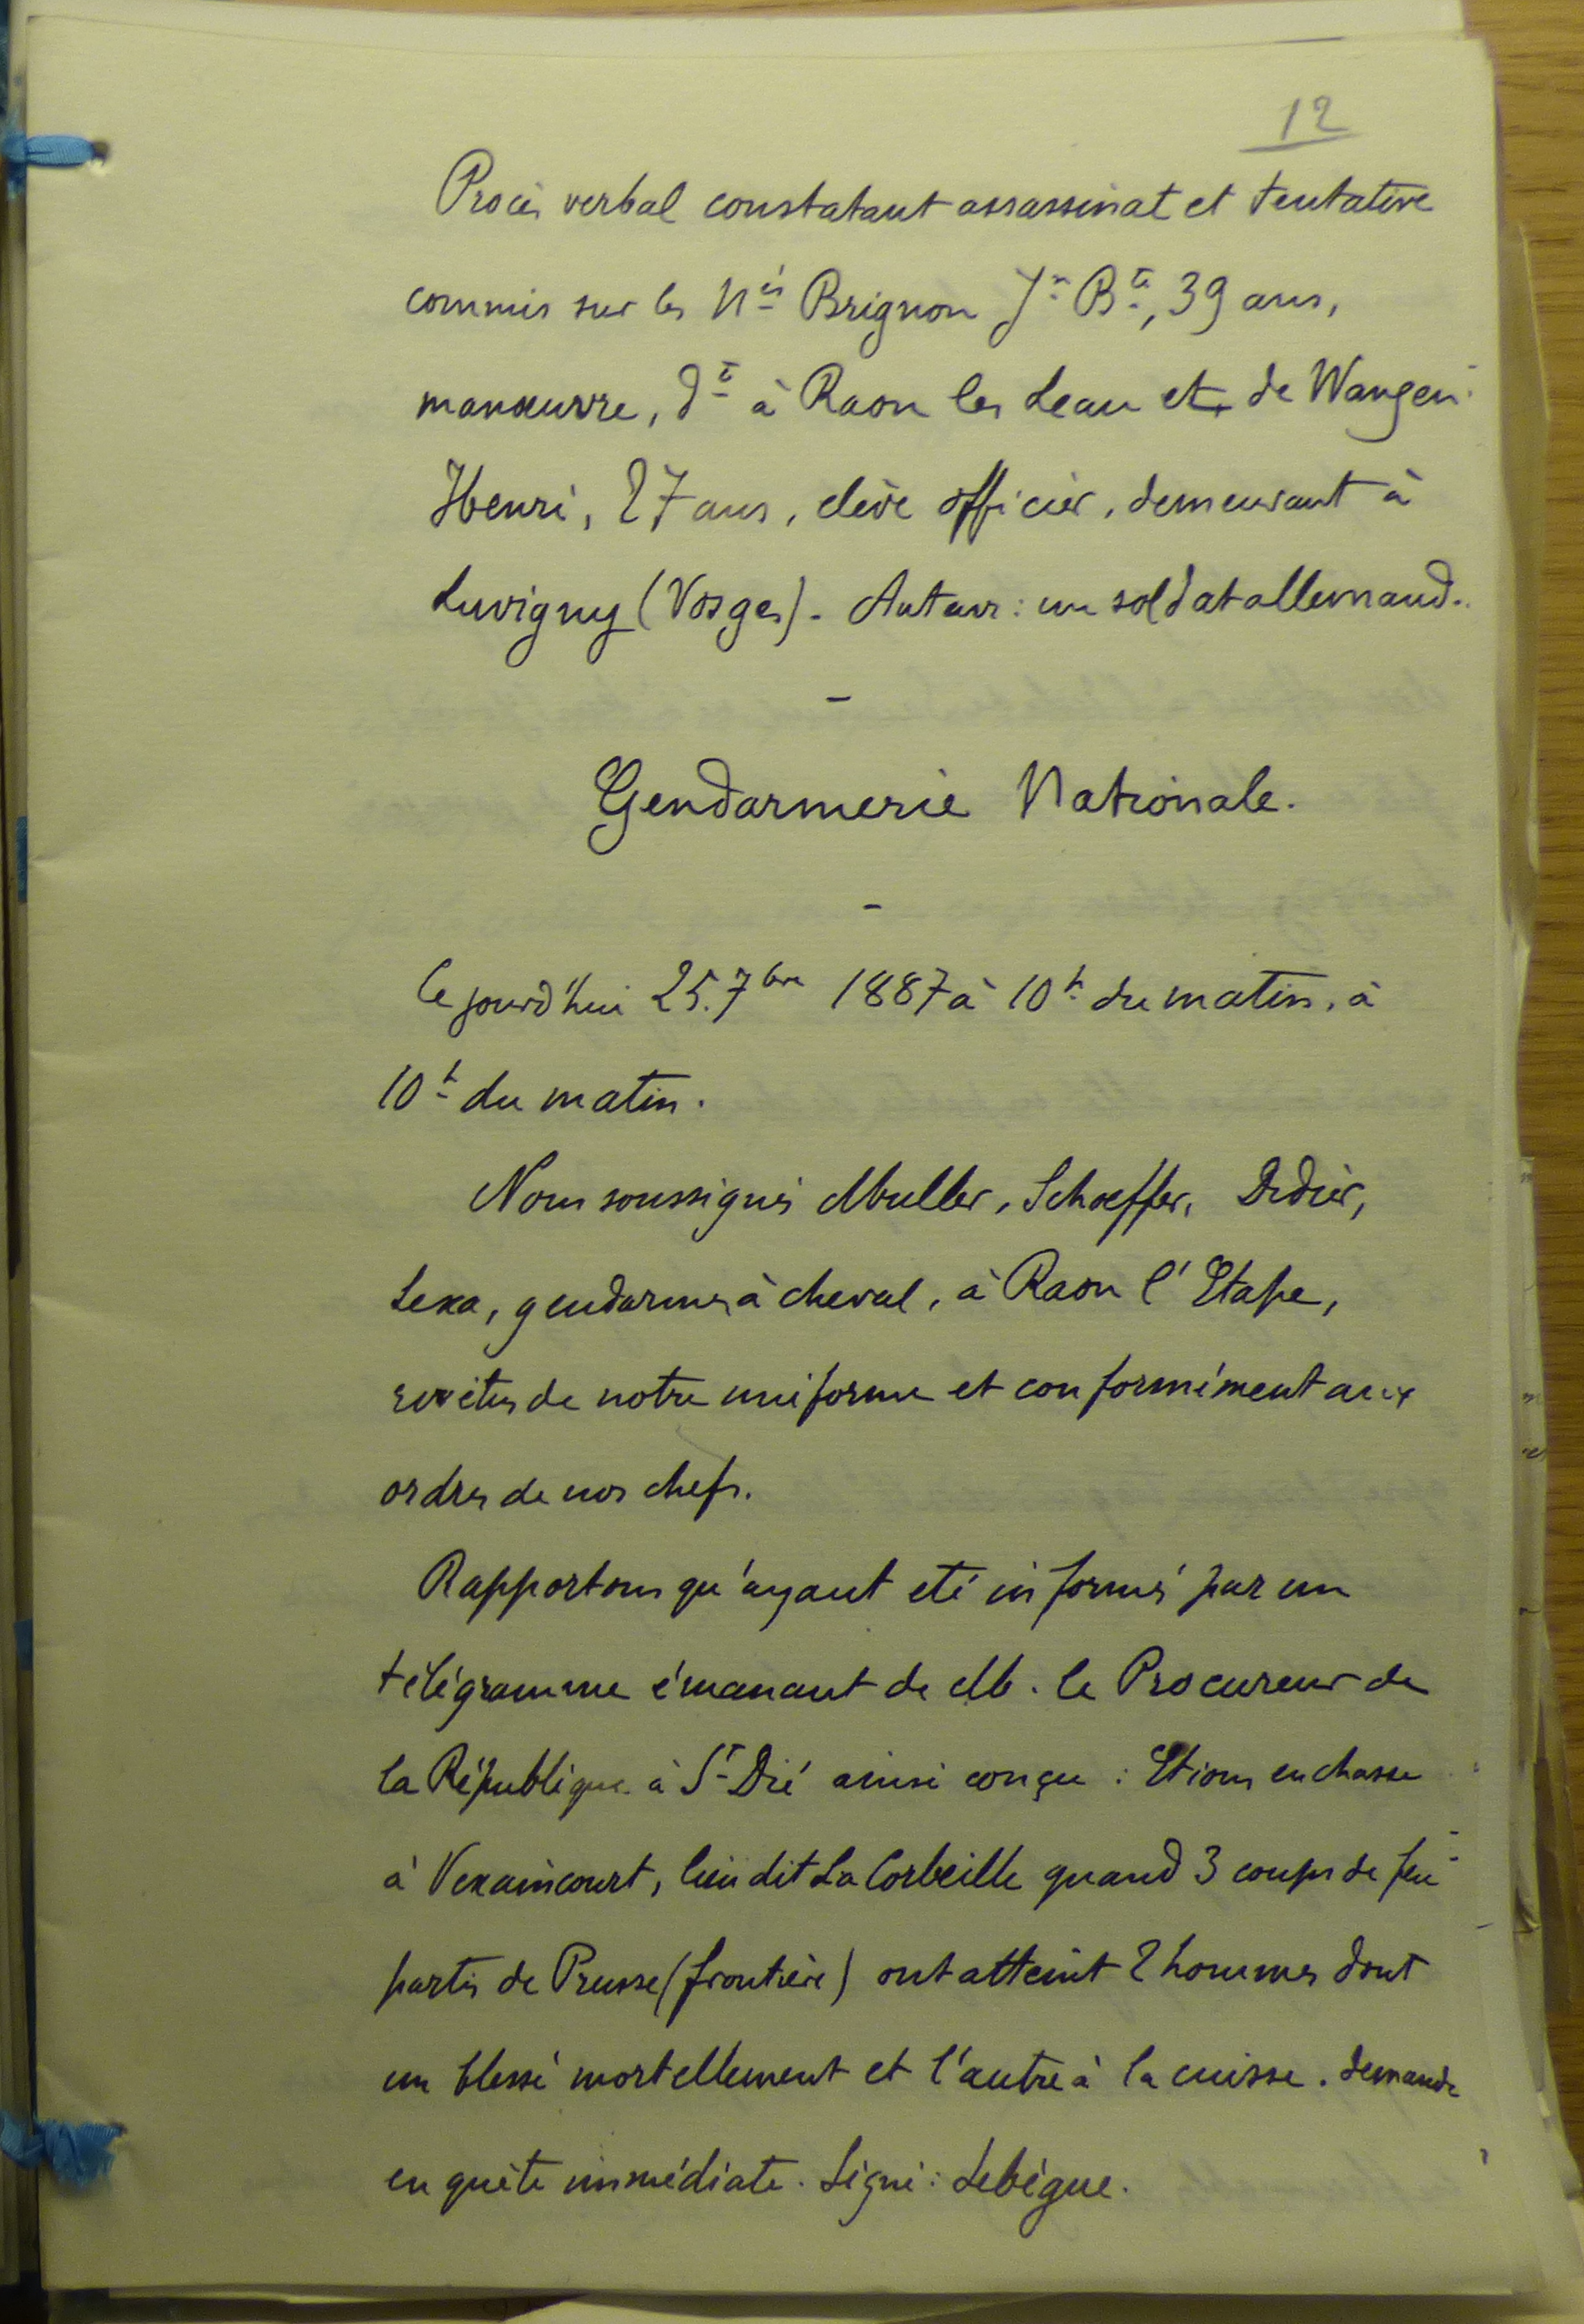 12
Procès verbal constatant assassinat et tentative
commis sur les Nés Brignon Jn Bte, 39 ans,
manœuvre, dt à Raon les Leau et de Wangen
Henri, 27 ans, élève officier, demeurant à
Luvigny (Vosges). Auteur : un soldat allemand.
-
Gendarmerie Nationale.
-
Ce jourd'hui 25.7bre 1887 à 10h du matin, à
10h du matin.
Nous soussignés Muller, Schoeffer, Didier,
Lexa, gendarmes à cheval, à Raon l'Etape,
revêtus de notre uniforme et conformément aux
ordres de nos chefs.
Rapportons qu'ayant eté informé par un
télégramme émanant de M. le Procureur de
la République à St Dié ainsi conçu : Etions en chasse
à Vexaincourt, lieu dit La Corbeille quand 3 coups de feu
partis de Prusse (frontière) ont atteint 2 hommes dont
un blessé mortellement et l'autre à la cuisse. demande
enquête immédiate. Signé : Lebègue.